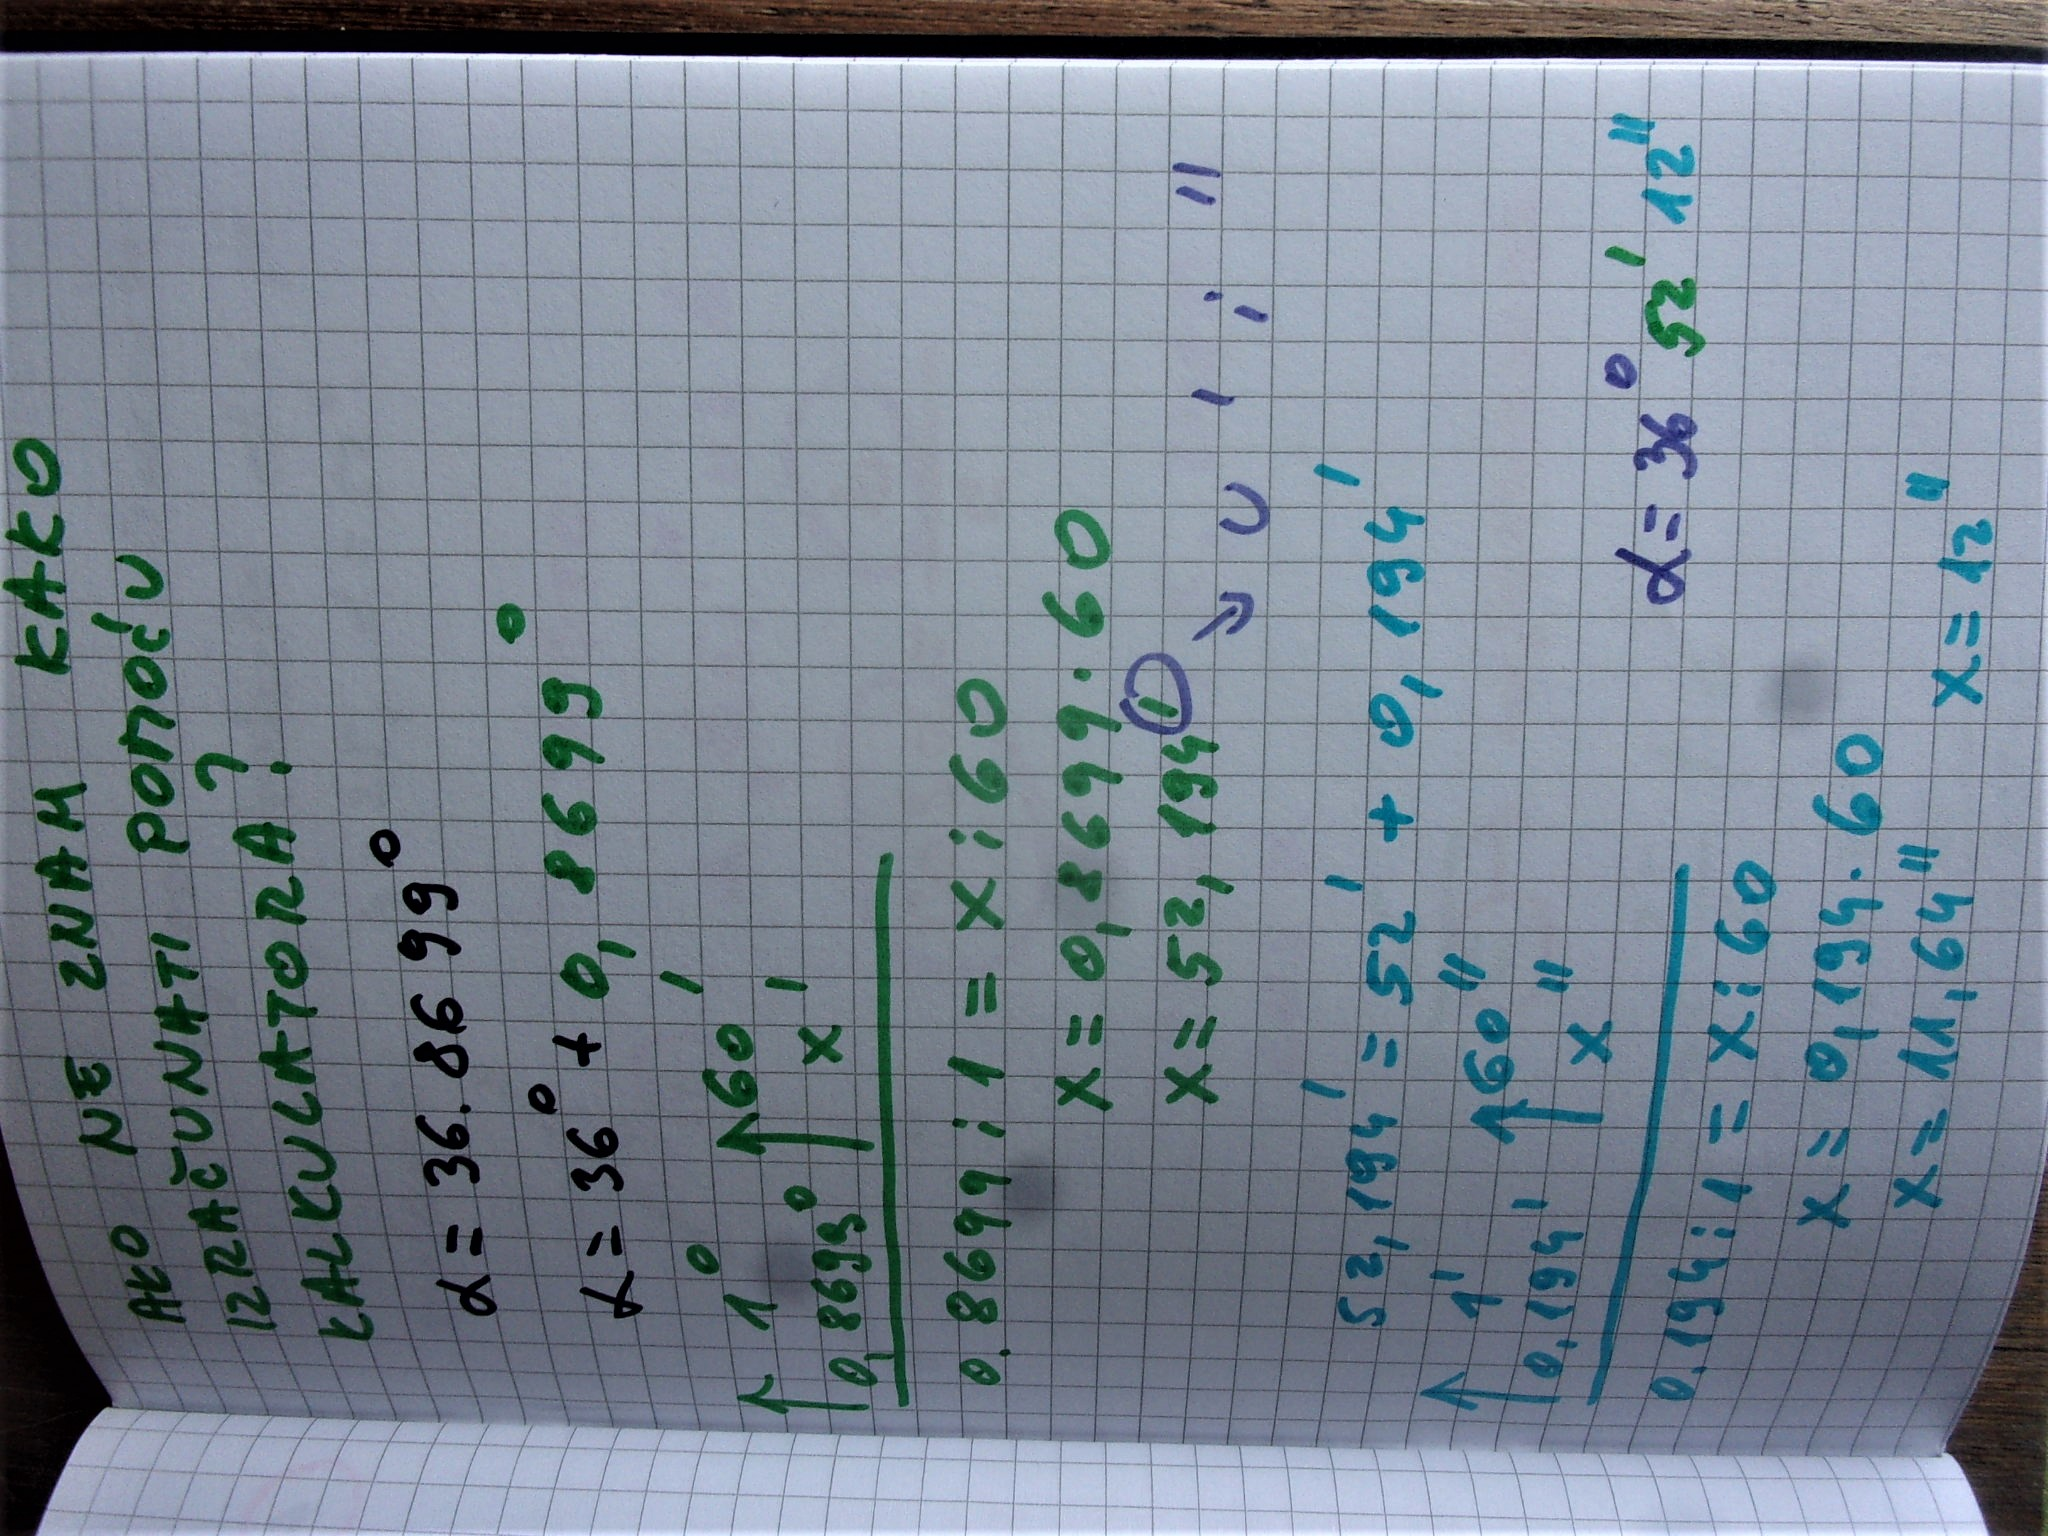 AKO NE ZNAM KAKO
IZRAČUNATI POMOĆU
KALKULATORA?
α = 36.8699°
α = 36° + 0,8699°
1° 60'
0,8699° x'
0.8699 : 1 = x : 60
x = 0,8699 · 60
x = 52,194' → U ' i "
52,194' = 52' + 0,194'
1' 60"
0.194' x"
0.194 : 1 = x : 60
α = 36° 52' 12"
x = 0,194 · 60
x = 11,64" x = 12"